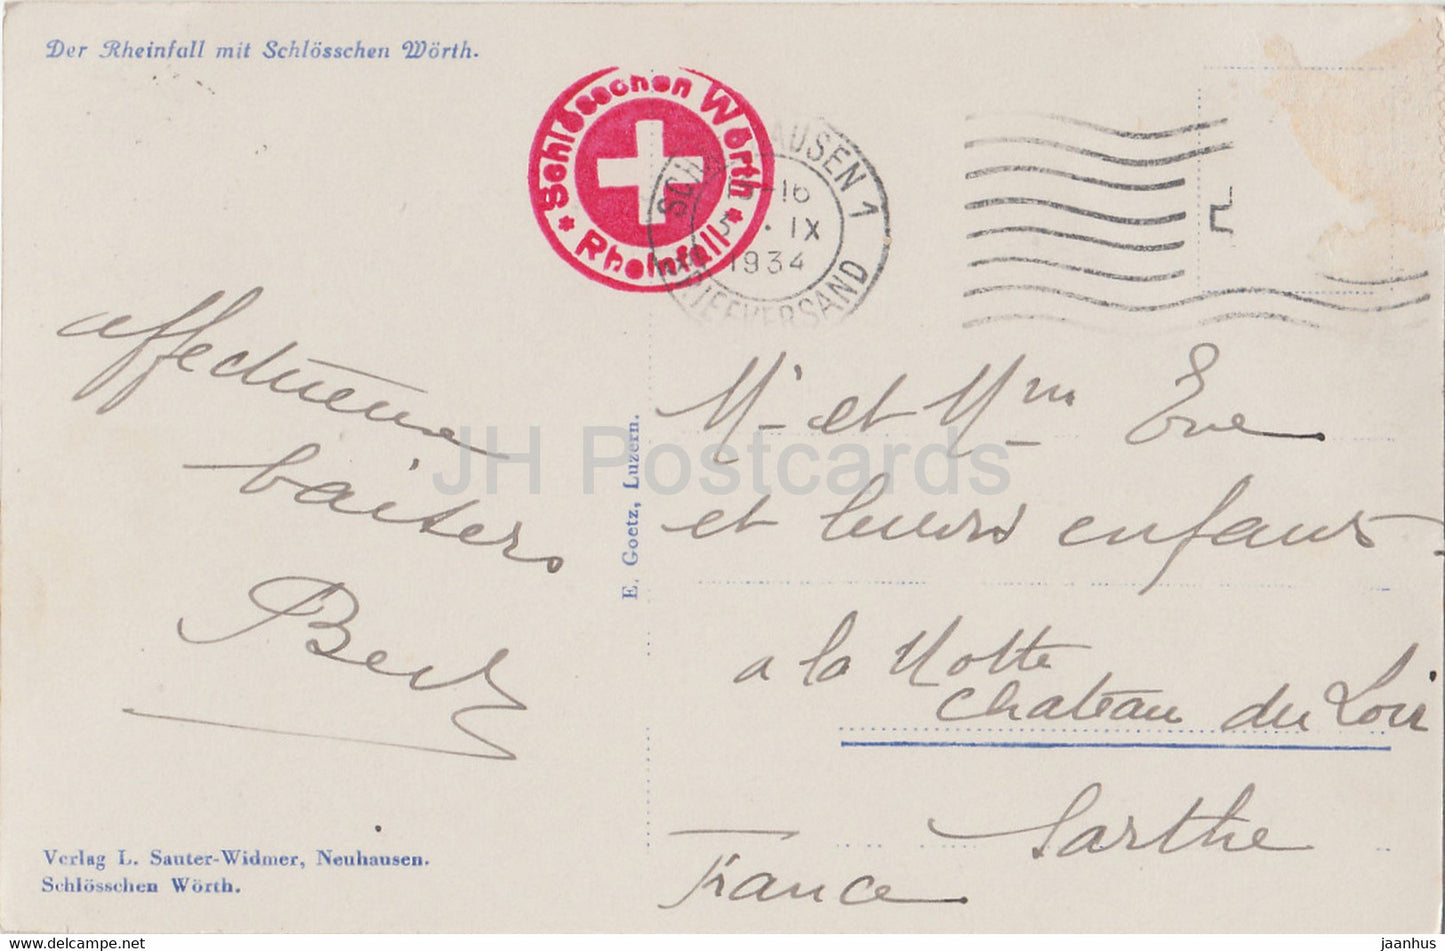 Der Rheinfall mit Schlösschen Wörth.
Schlösschen Wörth
* Rheinfall *
SCHAFFHAUSEN 1
-16
IX
1934
BRIEFVERSAND
affectueux
baisers
E. Goetz, Luzern.
Mr et Mme Eve
et leurs enfants
a la Motte
chateau du Loir
Sarthe
France
Verlag L. Sauter-Widmer, Neuhausen.
Schlösschen Wörth.
JH Postcards
www.hippostcard.com/store/jhpostcards
jaanhus